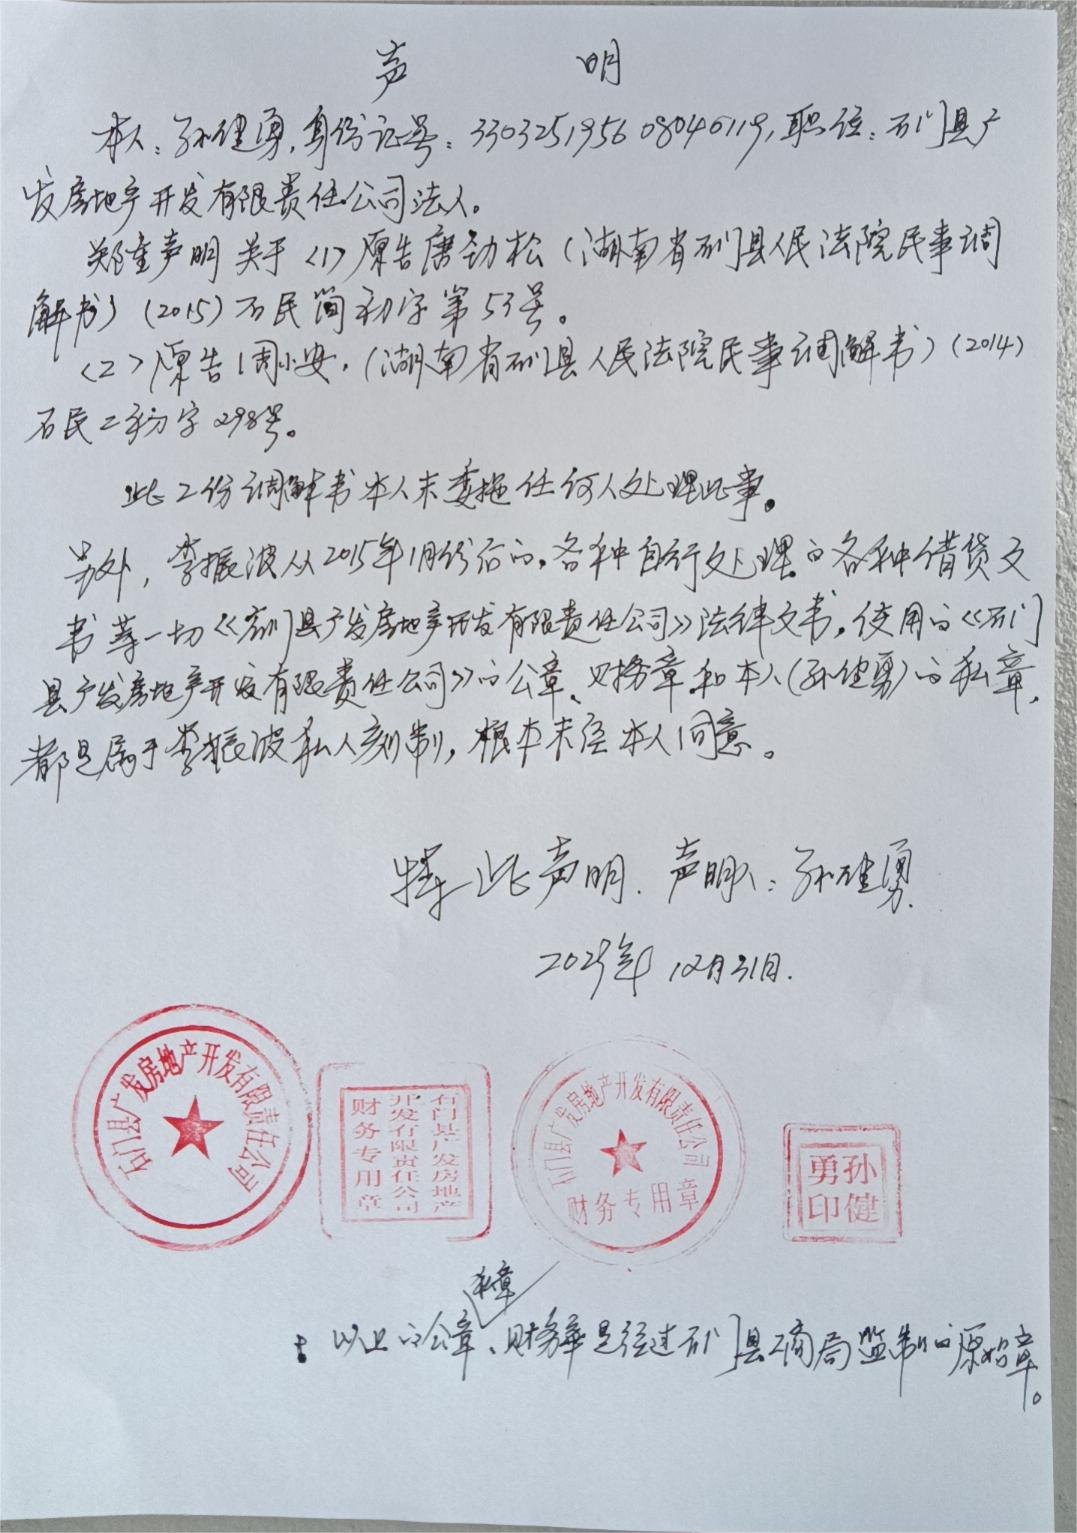 声 明
本人：孙健勇，身份证号：330325195608040119，职位：石门县广
发房地产开发有限责任公司法人。
郑重声明关于<1>原告唐劲松（湖南省石门县人民法院民事调
解书）（2015）石民简初字第53号。
<2>原告周小安，（湖南省石门县人民法院民事调解书）（2014）
石民二初字298号。
此2份调解书本人未委托任何人处理此事。
另外，李振波从2015年1月份后的，各种自行处理的各种借贷文
书等一切《石门县广发房地产开发有限责任公司》法律文书，使用的《石门
县广发房地产开发有限责任公司》的公章、财务章和本人（孙健勇）的私章，
都是属于李振波私人刻制，根本未经本人同意。
特此声明．声明人：孙健勇
2025年12月31日．
石门县广发房地产开发有限责任公司
石门县广发房地产
开发有限责任公司
财务专用章
石门县广发房地产开发有限责任公司
财务专用章
孙健
勇印
私章
以上的公章、财务章是经过石门县工商局监制的原始章。